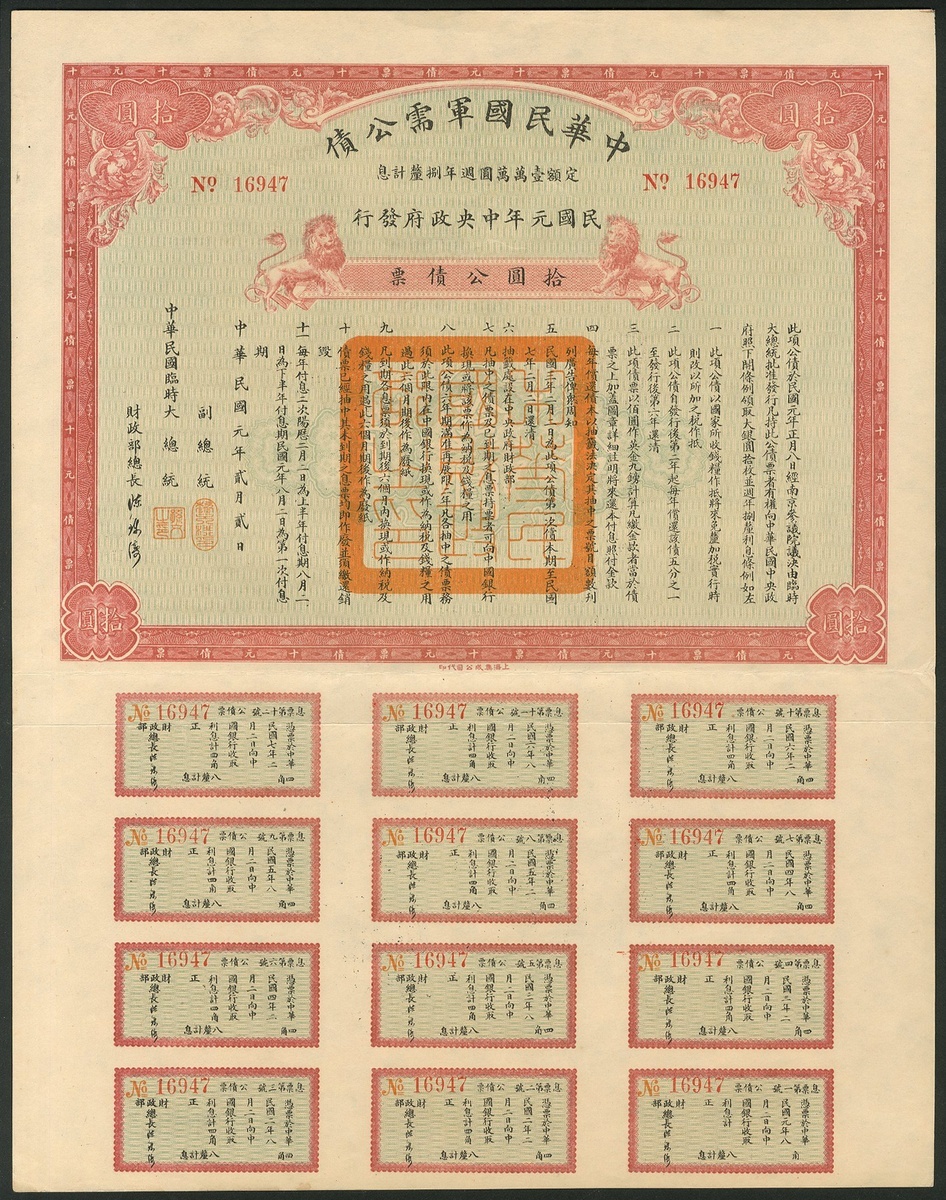 中華民國軍需公債
No 16947
No 16947
定額壹萬萬圓週年捌釐計息
民國元年中央政府發行
拾圓公債票
拾圓
拾圓
此項公債於民國元年正月八日經南京參議院議決由臨時
大總統批准發行凡持此公債票者有權向中華民國中央政
府照下開條例領取大銀圓拾枚並週年捌釐利息條例如左
一 此項公債以國家所收錢糧作抵將來免釐加稅實行時
則改以所加之稅作抵
二 此項公債自發行後第二年起每年償還該債五分之一
至發行後第六年還清
三 此項債票以佰圓作英金九鎊計算凡繳金款者當於債
票之上加蓋圖章詳細註明將來還本付息照付金款
四 每年償還債本以抽籤法決定其抽中之票號目額數刊
列廣告俾衆周知
五 民國二年二月二日為此項公債第一次償本期至民國
七年二月二日還清
六 抽籤處設在中央政府財政部
七 凡抽中之債票及已到期之息票持票者可向中國銀行
換現或將該票作為納稅及錢糧之用
八 此項公債六年期滿後再展限二年凡各抽中之債票務
須於此限內在中國銀行換現或作為納稅及錢糧之用
過此六個月期後作為廢紙
九 凡到期各息票須於到期後六個月內換現或作納稅及
錢糧之用過此六個月期後作為廢紙
十 債票已經抽中其未到期之息票均即作廢並須繳還銷
毀
十一 每年付息二次陽曆二月二日為上半年付息期八月二
日為下半年付息期民國元年八月二日為第一次付息
期
中華民國元年貳月貳日
副總統
中華民國臨時大總統
財政部總長
陳錦濤
拾圓
拾圓
上海集成公司代印
息票第十號 公債票
No 16947
憑票於中華
民國六年二
月二日向中
國銀行收取
利息計四角
正
財政部總長陳錦濤
四角
八釐計息
息票第十一號 公債票
No 16947
憑票於中華
民國六年八
月二日向中
國銀行收取
利息計四角
正
財政部總長陳錦濤
四角
八釐計息
息票第十二號 公債票
No 16947
憑票於中華
民國七年二
月二日向中
國銀行收取
利息計四角
正
財政部總長陳錦濤
四角
八釐計息
息票第七號 公債票
No 16947
憑票於中華
民國四年八
月二日向中
國銀行收取
利息計四角
正
財政部總長陳錦濤
四角
八釐計息
息票第八號 公債票
No 16947
憑票於中華
民國五年二
月二日向中
國銀行收取
利息計四角
正
財政部總長陳錦濤
四角
八釐計息
息票第九號 公債票
No 16947
憑票於中華
民國五年八
月二日向中
國銀行收取
利息計四角
正
財政部總長陳錦濤
四角
八釐計息
息票第四號 公債票
No 16947
憑票於中華
民國三年二
月二日向中
國銀行收取
利息計四角
正
財政部總長陳錦濤
四角
八釐計息
息票第五號 公債票
No 16947
憑票於中華
民國三年八
月二日向中
國銀行收取
利息計四角
正
財政部總長陳錦濤
四角
八釐計息
息票第六號 公債票
No 16947
憑票於中華
民國四年二
月二日向中
國銀行收取
利息計四角
正
財政部總長陳錦濤
四角
八釐計息
息票第一號 公債票
No 16947
憑票於中華
民國元年八
月二日向中
國銀行收取
利息計
正
財政部總長陳錦濤
角
八釐計息
息票第二號 公債票
No 16947
憑票於中華
民國二年二
月二日向中
國銀行收取
利息計四角
正
財政部總長陳錦濤
四角
八釐計息
息票第三號 公債票
No 16947
憑票於中華
民國二年八
月二日向中
國銀行收取
利息計四角
正
財政部總長陳錦濤
四角
八釐計息